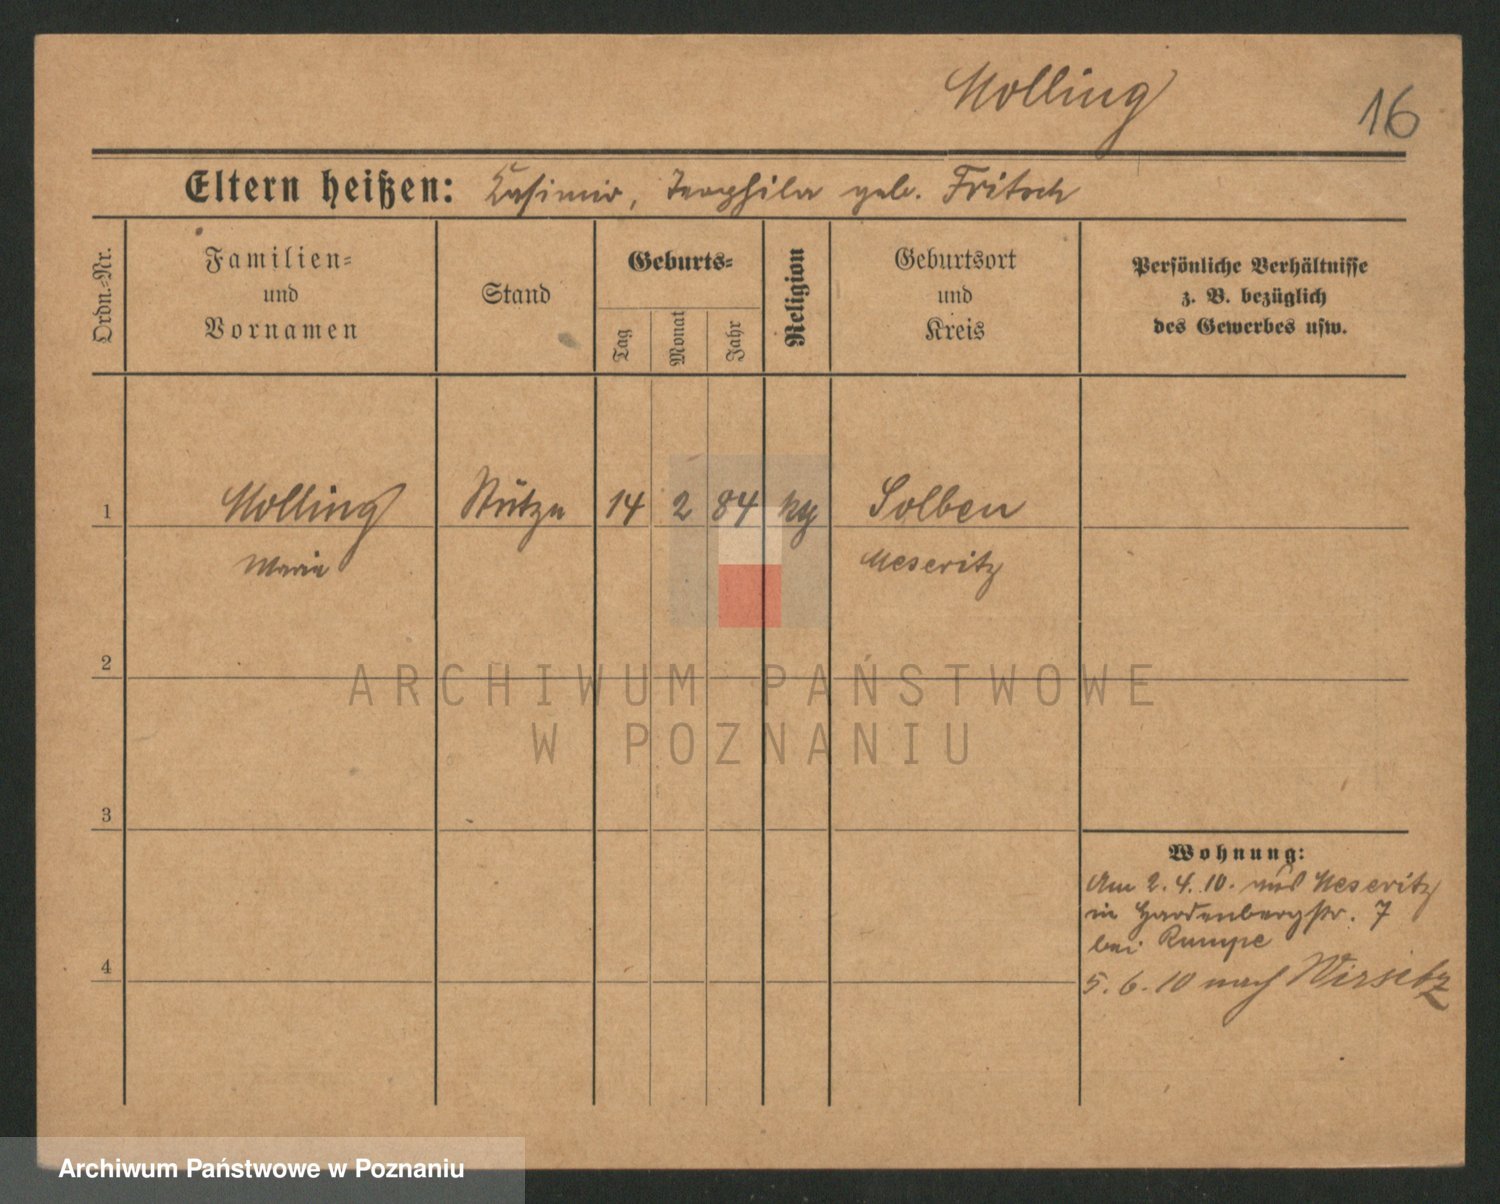 Molling
16
Eltern heißen: Kasimir, Teophila geb. Fritsch
Ordn.-Nr.
Familien-
und
Vornamen
Stand
Geburts-
Tag
Monat
Jahr
Religion
Geburtsort
und
Kreis
Persönliche Verhältnisse
z. B. bezüglich
des Gewerbes usw.
1 Molling Stütze 14 2 84 Solben
Marie Meseritz
2
ARCHIWUM PAŃSTWOWE
W POZNANIU
3
Wohnung:
Am 2.4.10. aus Meseritz
in Hardenbergstr. 7
bei Rumpe
4
5.6.10 nach Wirsitz
Archiwum Państwowe w Poznaniu